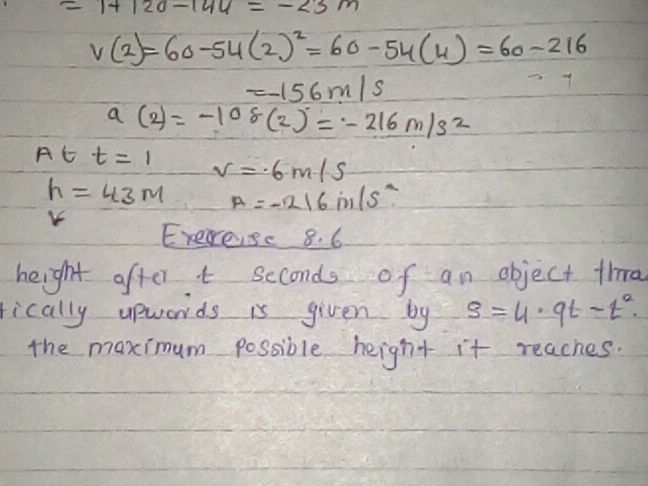 = 1+120-144 = -23 m
v(2)=60-54(2)²=60-54(4)=60-216
=-156m/s
a (2)= -108(2)=-216m/s2
At t=1 v=.6m/s
h=43m A=-216m/s²
v
Exercise 8.6
height after t seconds of an object thro
tically upwards is given by s=4.9t-t².
the maximum possible height it reaches.